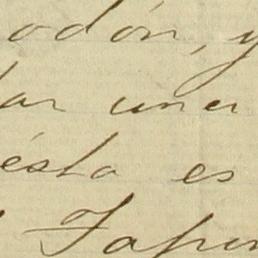 odón, y
ar una
ésta es
Japon